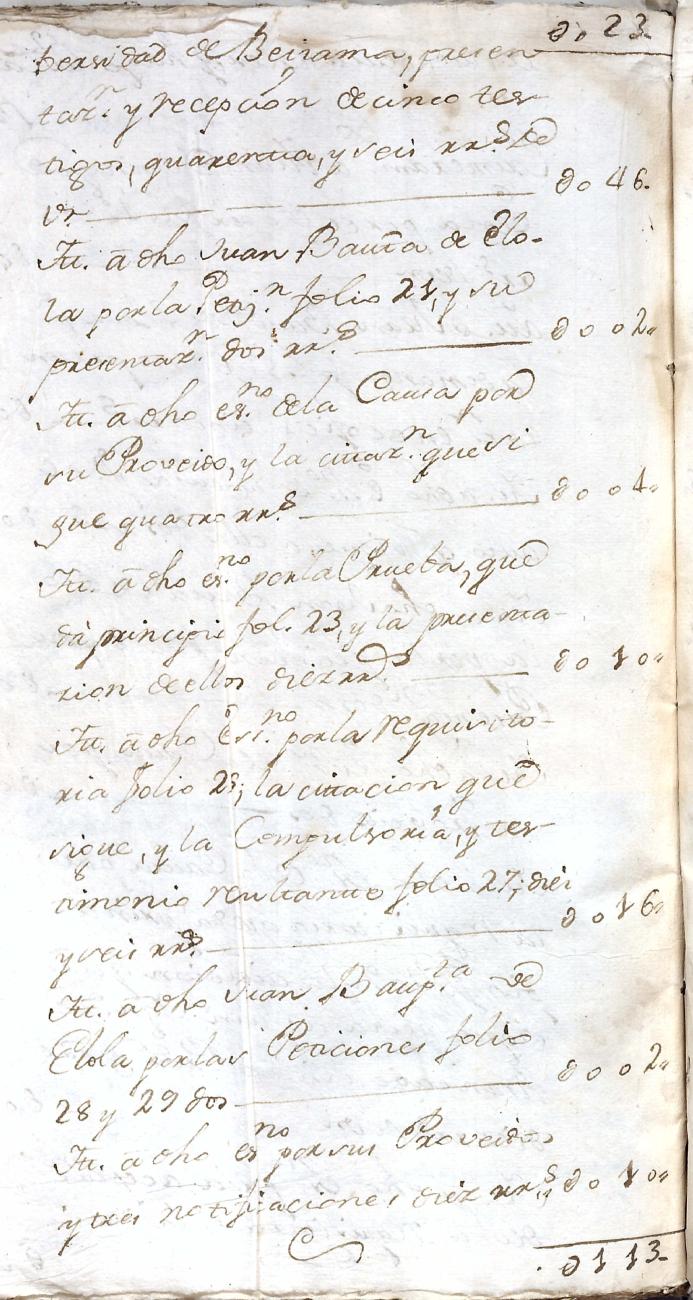 0 „ 23
bersidad de Beizama, presen
tazn. y recepcion de cinco tes-
tigos, quarenta, y seis rrs. de
vn. 0 0 46.
Itt. a dho Juan Bauta de Elo-
la por la Petizn. folio 21, y su
presentazn. dos rrs. 0 0 02„
Itt. a dho esno. dela Causa por
su Proveido, y la citazn. que si
gue quatro rrs. 0 0 04„
Itt. a dho esno. por la Prueba, que
dá principio fol. 23, y la presenta-
zion de ellos diez rrs. 0 0 10„
Itt. a dho Esno. por la requisito-
ria folio 25, la citacion que
sigue, y la Compulsoria, y tes-
timonio resultante folio 27, diez
y seis rrs. 0 0 16„
Itt. a dho Juan Baupta. de
Elola por las Peticiones folio
28 y 29 dos 0 0 02„
Itt. a dho esno por sus Proveidos
y tres notificaciones diez rrs. 0 0 10„
0113„